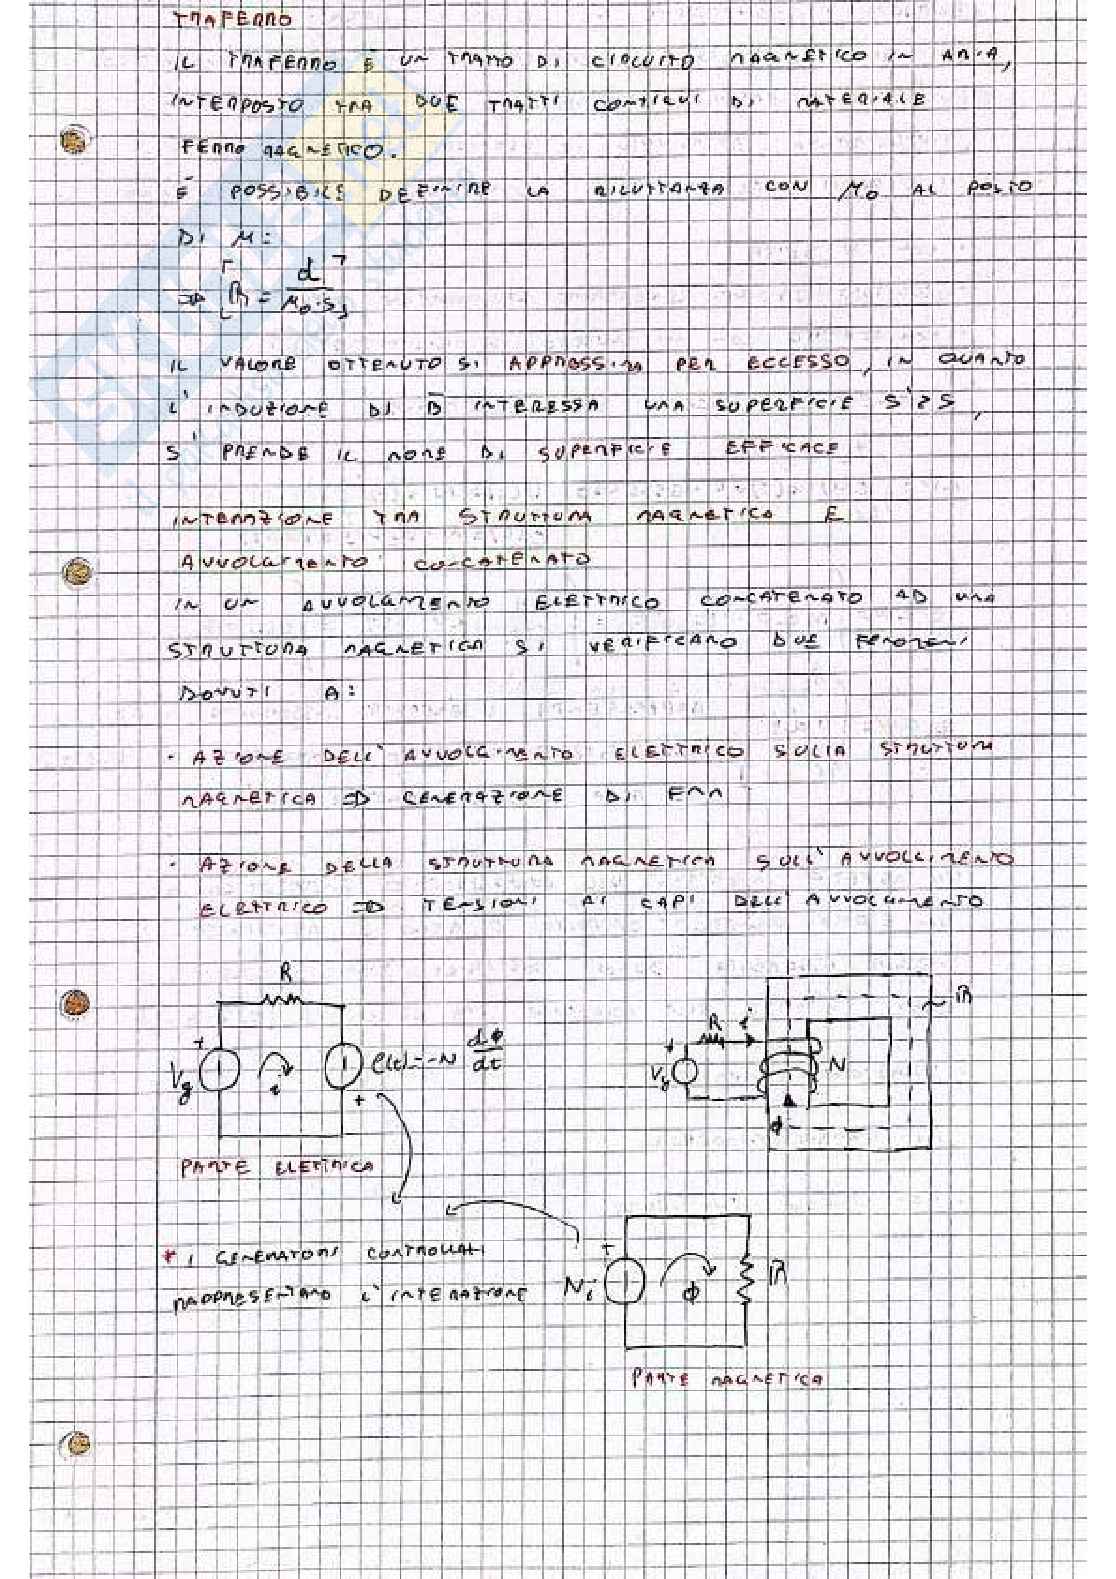 TRAFERRO
IL TRAFERRO È UN TRATTO DI CIRCUITO MAGNETICO IN ARIA,
INTERPOSTO TRA DUE TRATTI CONTIGUI DI MATERIALE
FERRO MAGNETICO.
È POSSIBILE DEFINIRE LA RILUTTANZA CON μ0 AL POSTO
DI μ:
⇒ [ℝ = d / μ0·S]
IL VALORE OTTENUTO SI APPROSSIMA PER ECCESSO, IN QUANTO
L'INDUZIONE DI B INTERESSA UNA SUPERFICIE S'≥S,
S' PRENDE IL NOME DI SUPERFICIE EFFICACE
INTERAZIONE TRA STRUTTURA MAGNETICA E
AVVOLGIMENTO CONCATENATO
IN UN AVVOLGIMENTO ELETTRICO CONCATENATO AD UNA
STRUTTURA MAGNETICA SI VERIFICANO DUE FENOMENI
DOVUTI A:
· AZIONE DELL'AVVOLGIMENTO ELETTRICO SULLA STRUTTURA
MAGNETICA ⇒ GENERAZIONE DI FMM
· AZIONE DELLA STRUTTURA MAGNETICA SULL'AVVOLGIMENTO
ELETTRICO ⇒ TENSIONI AI CAPI DELL'AVVOLGIMENTO
R
+ Vg i e(t)=-N dΦ/dt +
PARTE ELETTRICA
R i ℝ
+ Vg N
Φ
* I GENERATORI CONTROLLATI
RAPPRESENTANO L'INTERAZIONE
+ Ni Φ ℝ
PARTE MAGNETICA